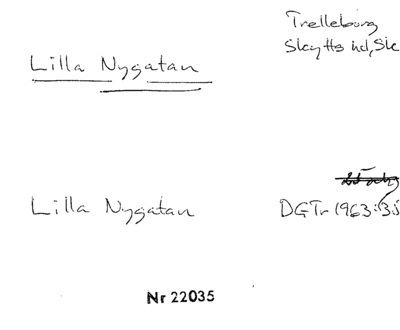 Trelleborg
Skytts hd, Sk
Lilla Nygatan
Lilla Nygatan
DGTr 1963:35
Nr 22035